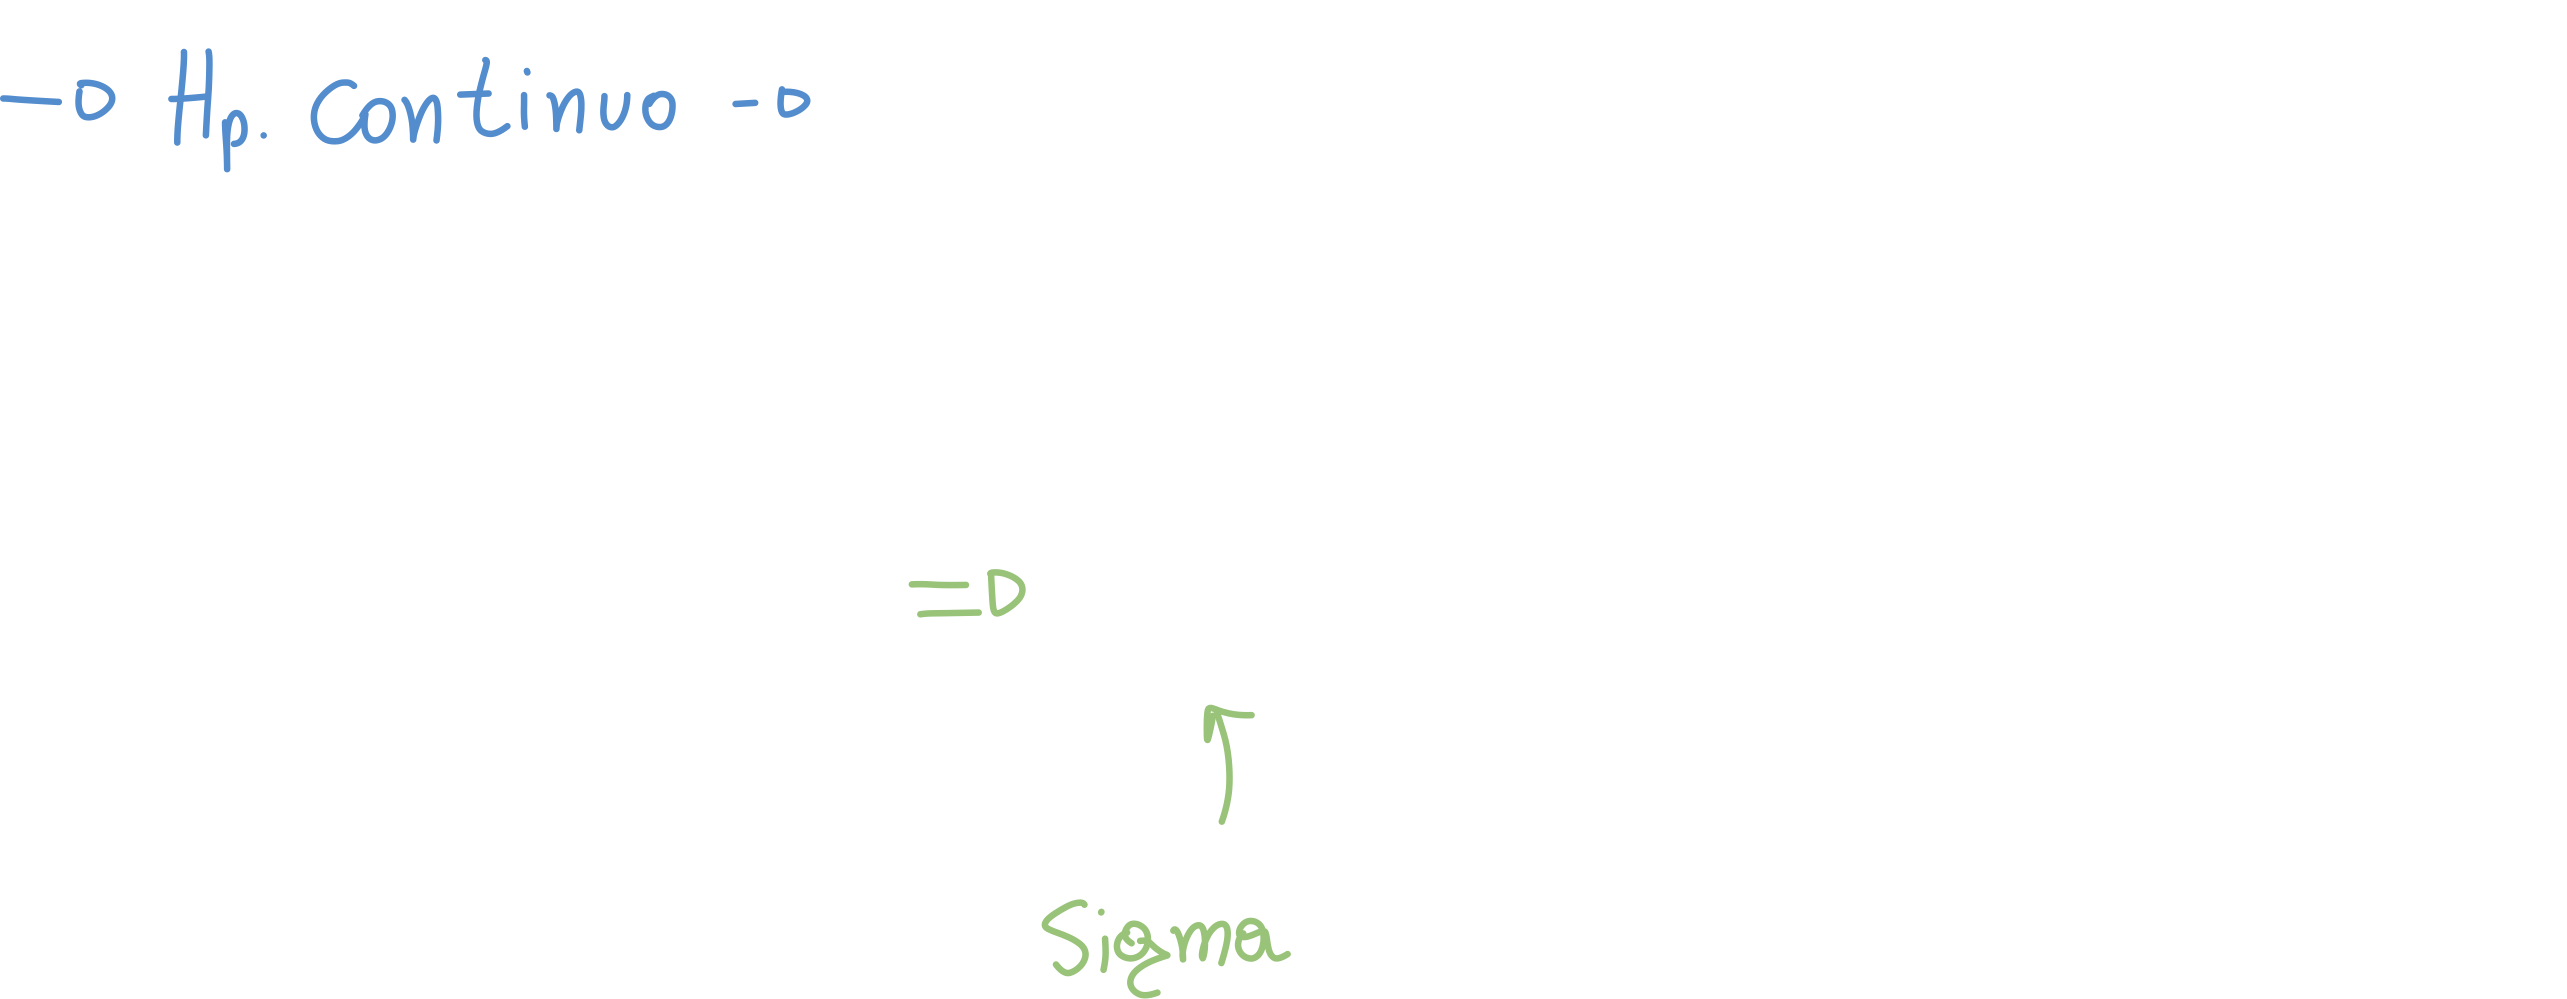 → Hp. Continuo →
⇒
↑
Sigma